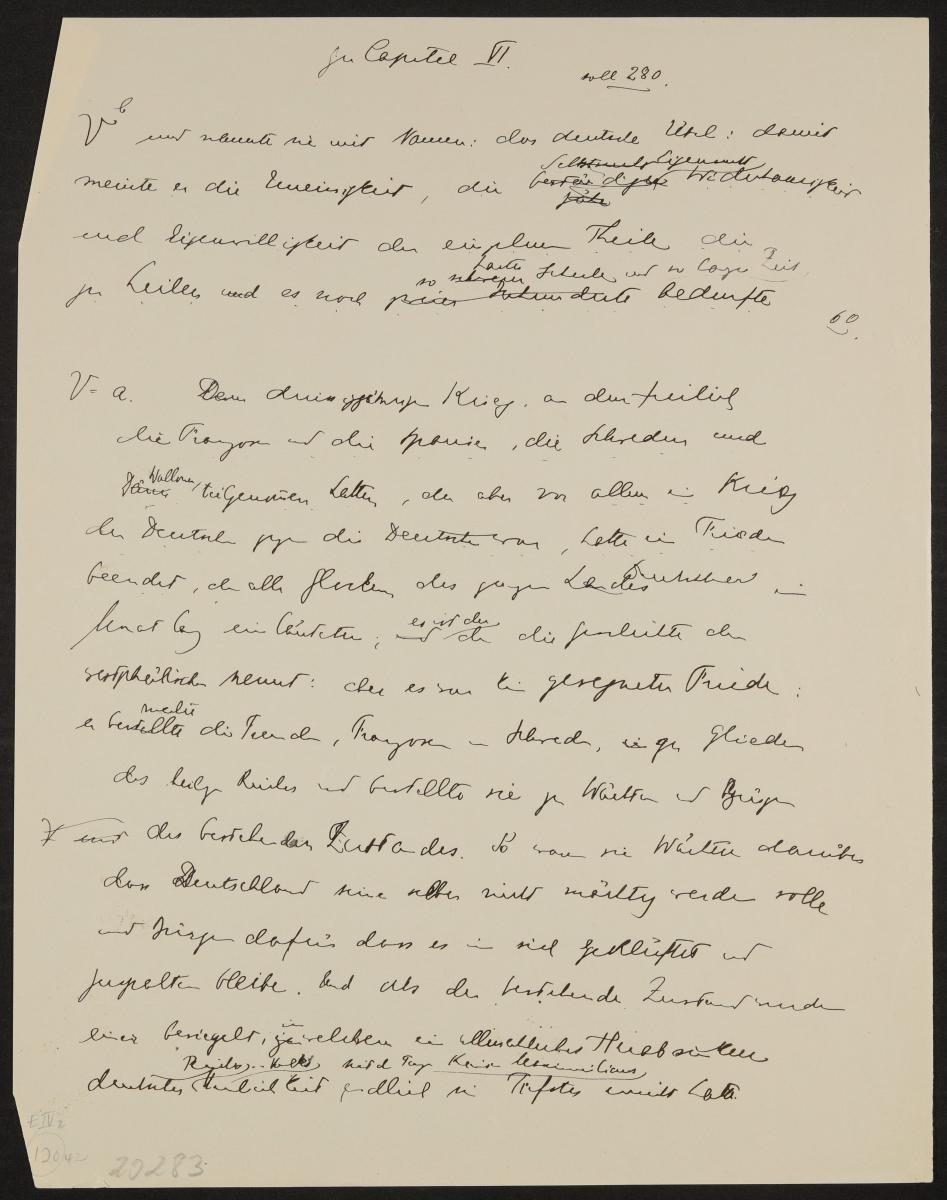 zu Capitel VI.
soll 280.
V b und nannte sie mit Namen: das deutsche Übel: damit
Eigensucht
meinte er die Uneinigkeit, die beständige Widerhaarigkeit
und Eigenwilligkeit der einzelnen Theile die
so harte Schule und so lange Zeit
zu heilen und es noch zweier Jahrhunderte bedurfte
60.
V = a. Dem dreissigjährigen Krieg, an dem freilich
die Franzosen und die Spanier, die Schweden und
Wallonen
teilgenommen hatten, der aber vor allem ein Krieg
der Deutschen gegen die Deutschen war, hatte ein Frieden
beendet, den alle Glocken des ganzen Landes
Monat lang einläuteten; es ist der den die Geschichte den
westphälischen nennt: aber es war kein gesegneter Friede:
machte
er bestellte die Fremden, Franzosen und Schweden, zu Gliedern
des heilgen Reiches und bestellte sie zu Wächtern und Bürgen
und des bestehenden Zustandes. So waren sie Wächter darüber
dass Deutschland seiner selber nicht mächtig werden solle
und Bürgen dafür dass es in sich geklüftet und
gespalten bleibe. Und als der bestehende Zustand wurde
einer besiegelt, in welchem ein allmähliches Hinabsinken
seit den Tagen Kaiser Maximilians
deutscher Herrlichkeit endlich sein Tiefstes erreicht hatte.
E IV 2
12042
20283